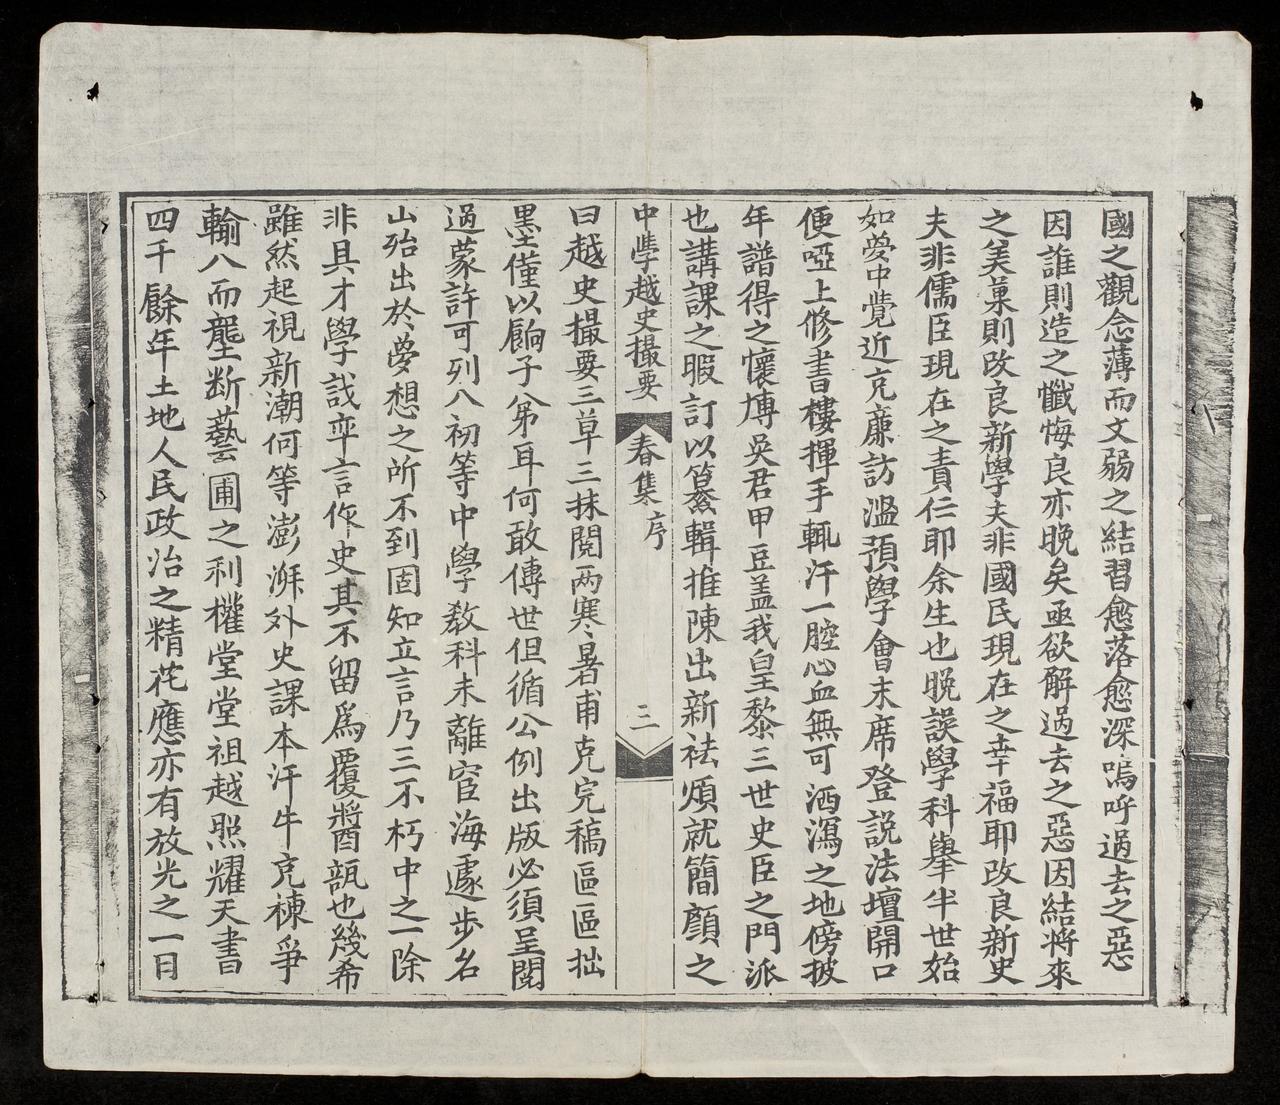 國之觀念薄而文弱之結習愈落愈深嗚呼過去之惡
因誰則造之懺悔良亦晚矣亟欲解過去之惡因結將來
之美菓則改良新學夫非國民現在之幸福耶改良新史
夫非儒臣現在之責任耶余生也晚誤學科舉半世始
如夢中覺近充廉訪濫預學會末席登說法壇開口
便啞上修書樓揮手輒汗一腔心血無可洒瀉之地傍披
年譜得之懷塼吳君甲豆盖我皇黎三世史臣之門派
也講課之暇訂以纂輯推陳出新袪煩就簡顏之
中學越史撮要 春集 序 三
曰越史撮要三草三抹閱兩寒暑甫克完稿區區拙
墨僅以餉子弟耳何敢傳世但循公例出版必須呈閱
過蒙許可列八初等中學教科未離宦海遽步名
山殆出於夢想之所不到固知立言乃三不朽中之一除
非具才學識率言作史其不留爲覆醬瓿也幾希
雖然起視新潮何等澎湃外史課本汗牛充棟爭
輸八而壟断藝圃之利權堂堂祖越照耀天書
四千餘年土地人民政治之精花應亦有放光之一日